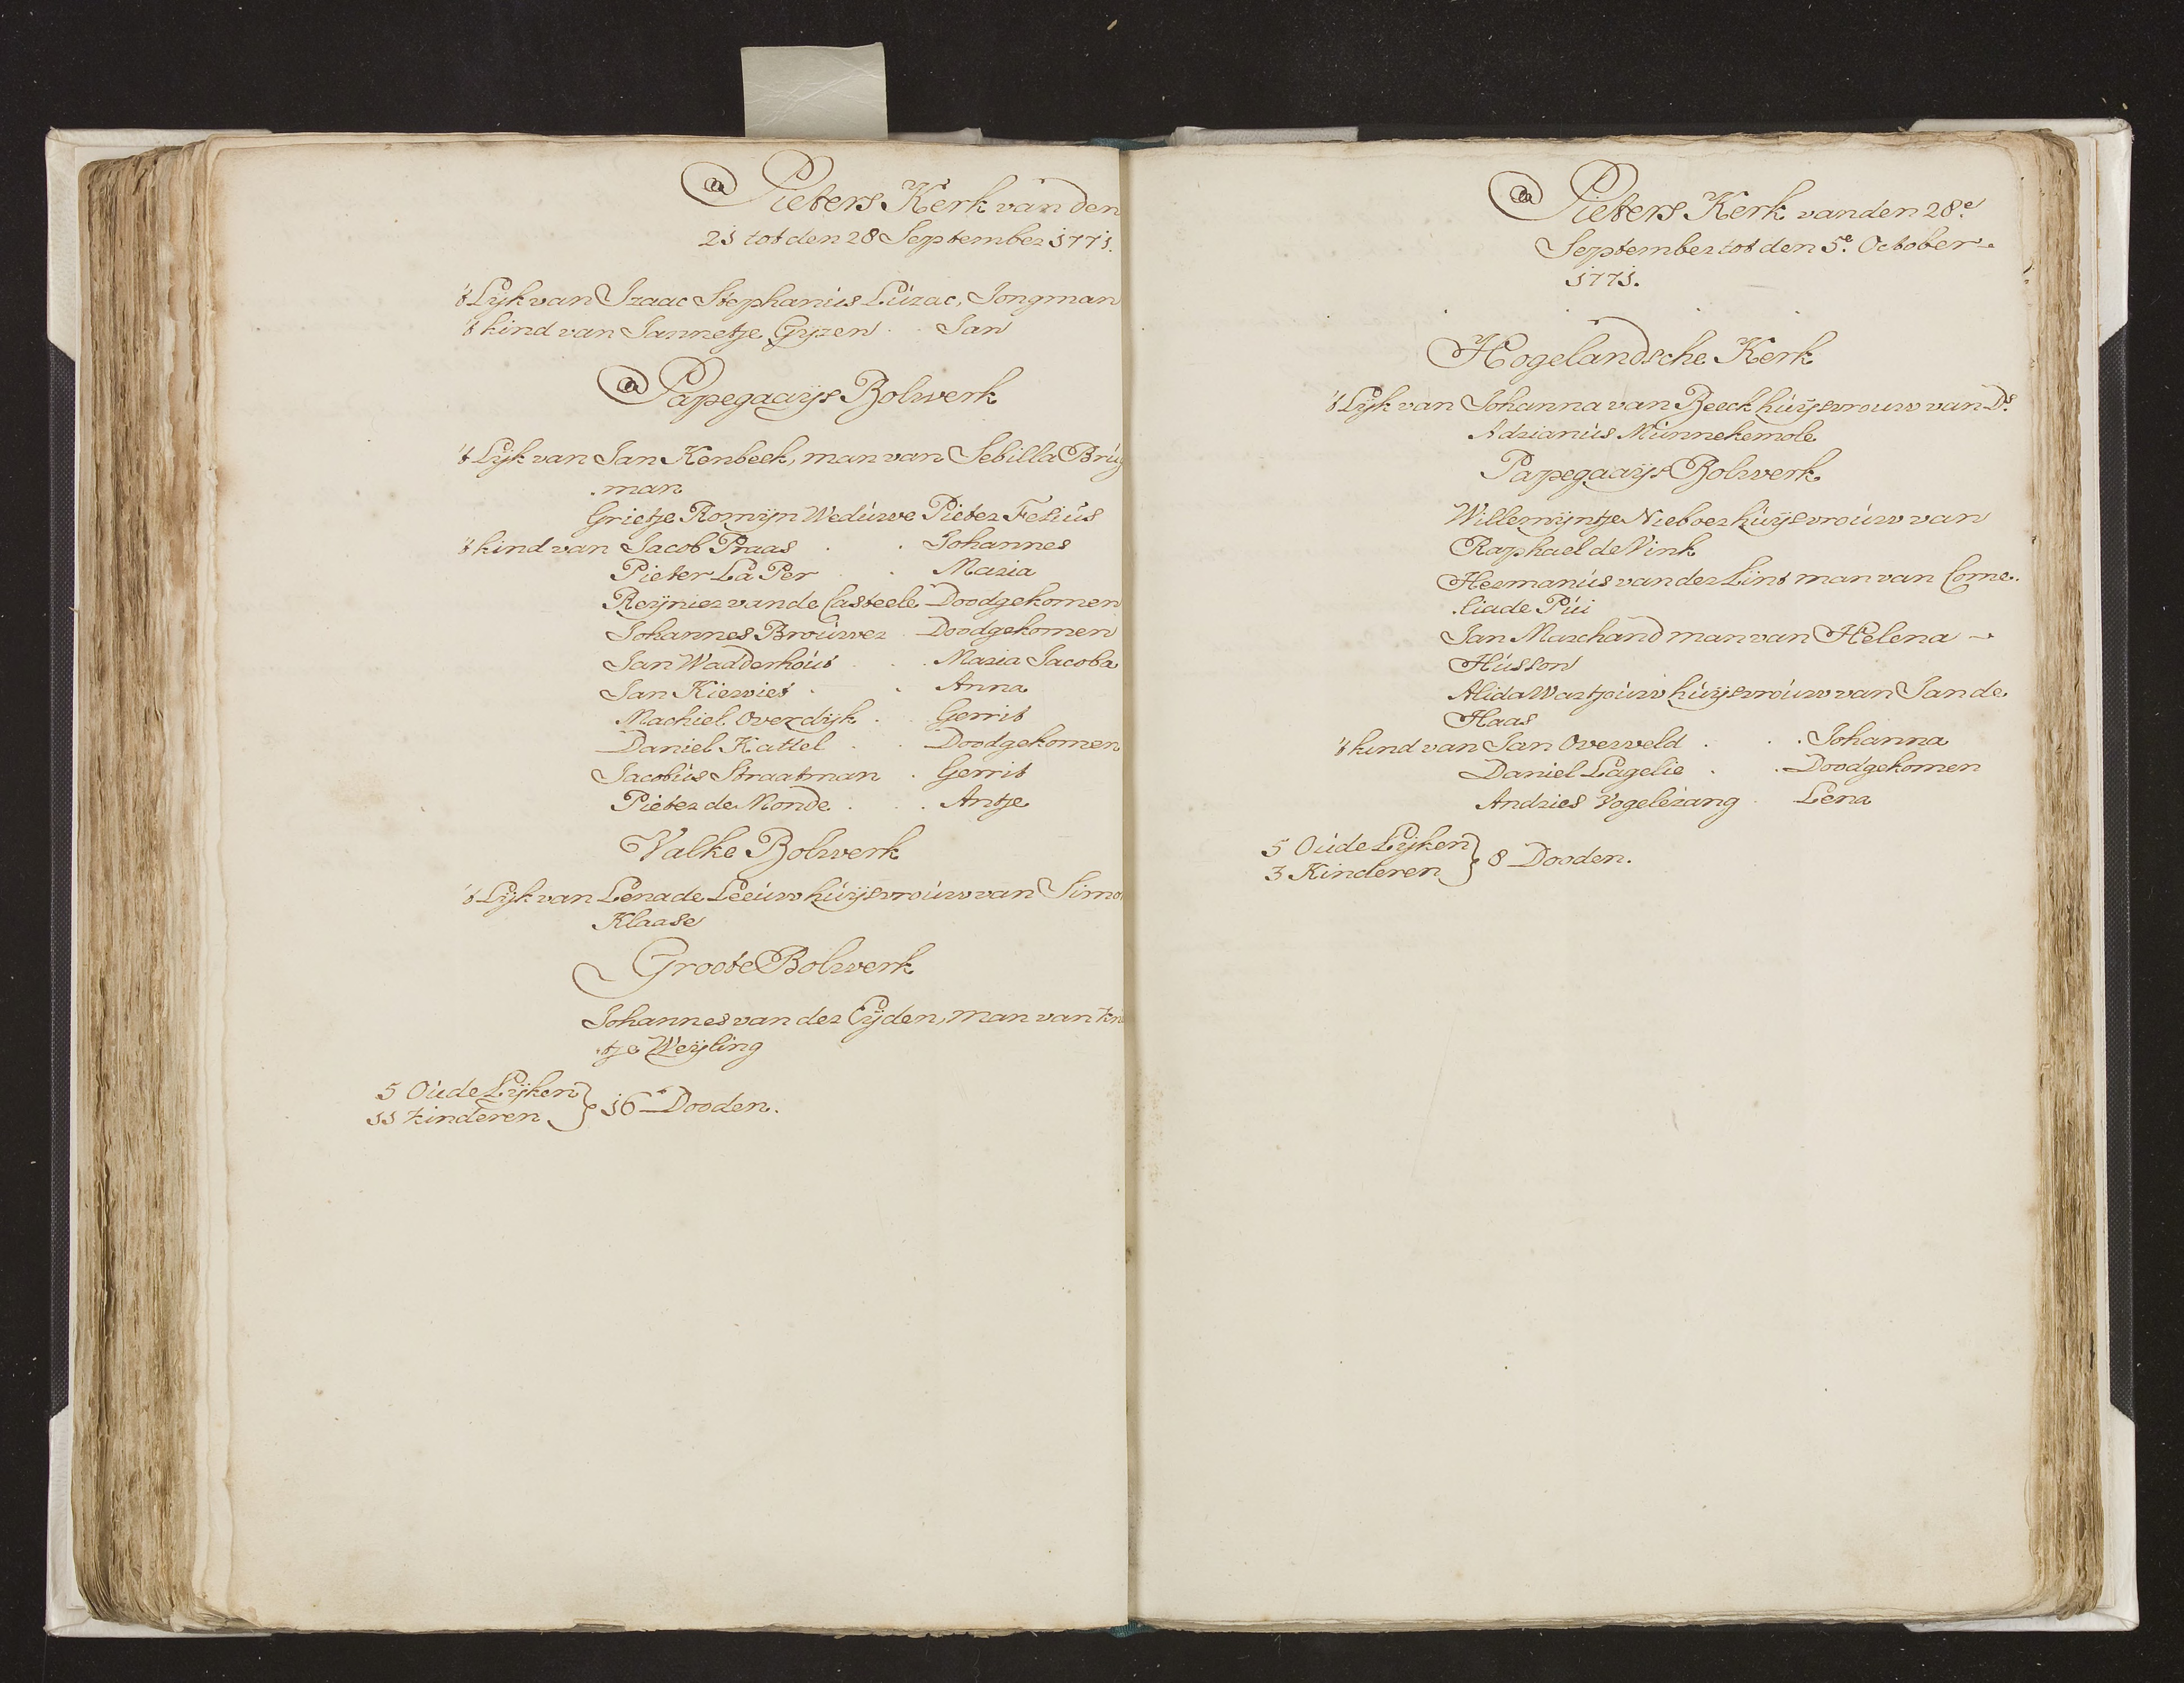 @ Pieters Kerk van den
21 tot den 28 September 1771.
't Lijk van Izaac Stephanus Luzac, Jongman
't kind van Jannetje Gijzen . . Jan
@ Papegaaijs Bolwerk
't Lijk van Jan Kenbeek, man van Sebilla Brug
. man
Grietje Romijn Weduwe Pieter Felius
't kind van Jacob Praas . . Johannes
Pieter La Per . . Maria
Reijnier van de Casteele Doodgekomen
Johannes Brouwer . Doodgekomen
Jan Wadderhout . . Maria Jacoba
Jan Kierviet . . Anna
Machiel Overdijk . Gerrit
Daniel Kattel . . Doodgekomen
Jacobus Straatman . Gerrit
Pieter de Monde . . Antje
Valke Bolwerk
't Lijk van Lena de Leeuw huijsvrouw van Simo
Klaase
Groote Bolwerk
Johannes van der Eijden, man van
tje Weijling
5 Oude Lijken
11 kinderen } 16 Dooden.
@ Pieters Kerk van den 28e
September tot den 5e October
1771.
Hogelandsche Kerk
't Lijk van Johanna van Beeck huijsvrouw van Ds
Adrianus Munnekemole
Papegaaijs Bolwerk
Willemijntje Nieboer huijsvrouw van
Raphael de Vink
Hermanus van der Lint man van Corne.
. lia de Pui
Jan Marchand man van Helena
Husson
Alida Wartjouw huijsvrouw van Jan de
Haas
't kind van Jan Overveld . . . Johanna
Daniel Lagelie . . Doodgekomen
Andries Vogelezang . Lena
5 Oude Lijken
3 Kinderen } 8 Dooden.